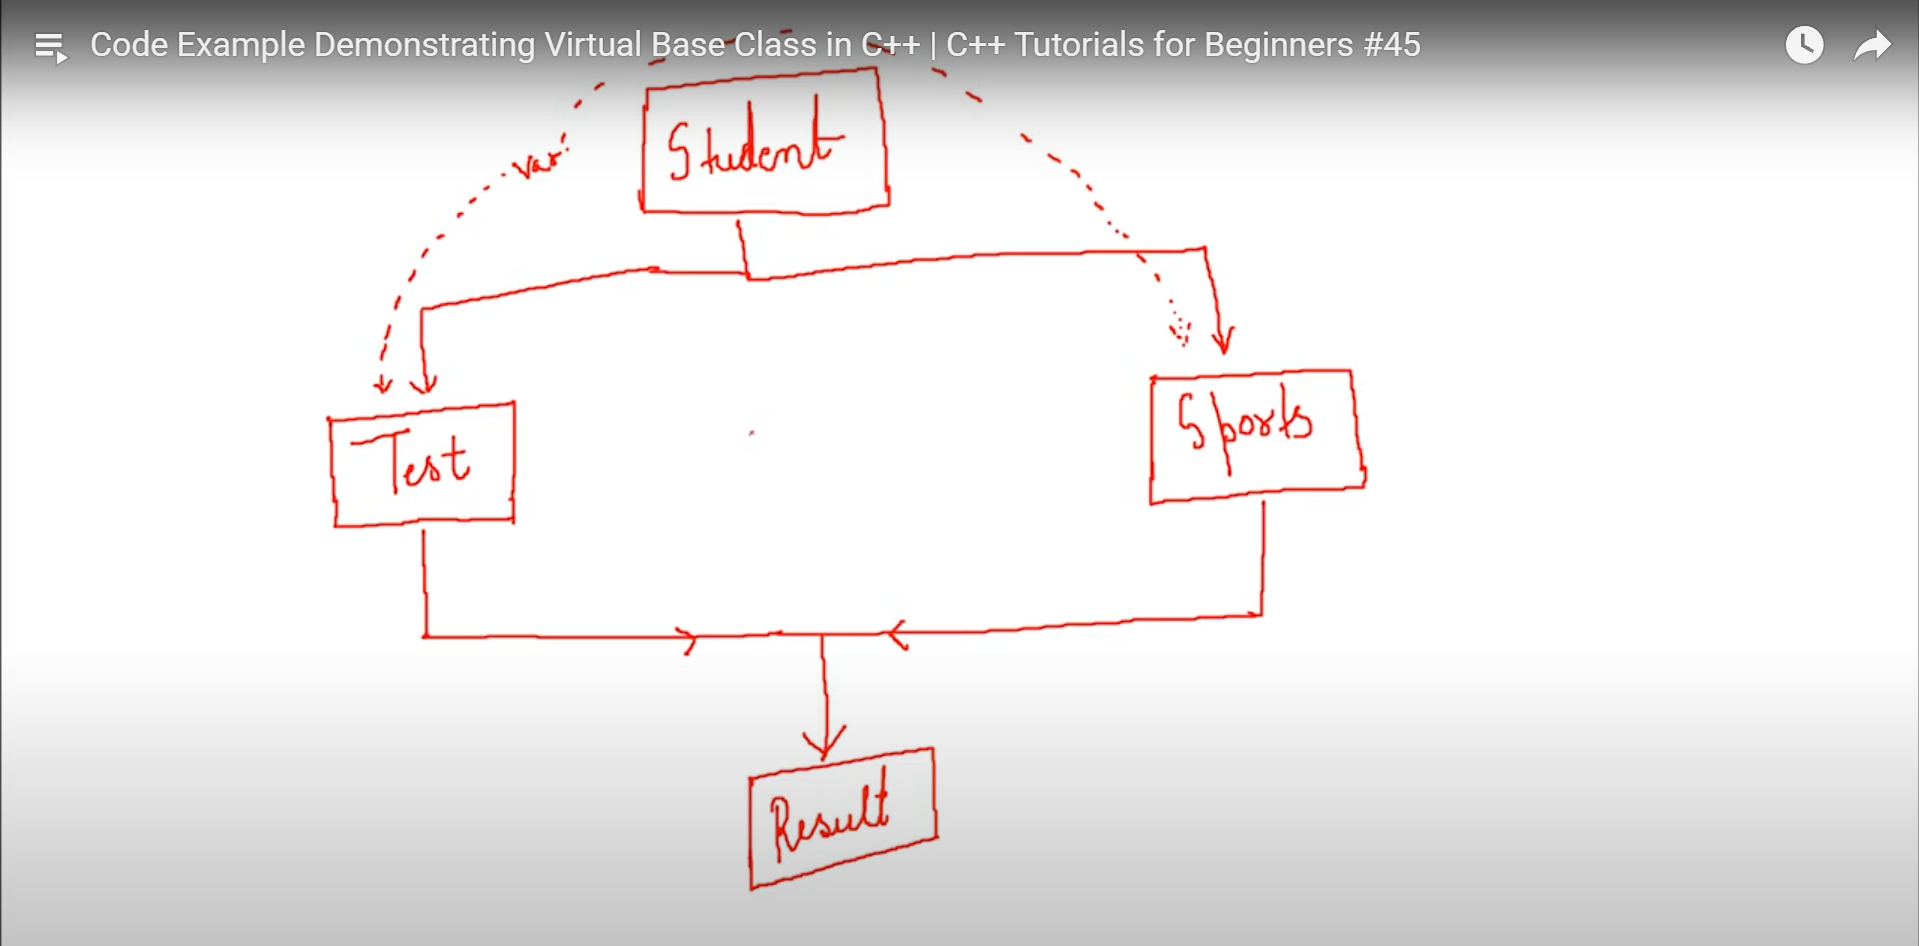 Code Example Demonstrating Virtual Base Class in C++ | C++ Tutorials for Beginners #45
Student
var
Test
Sports
Result